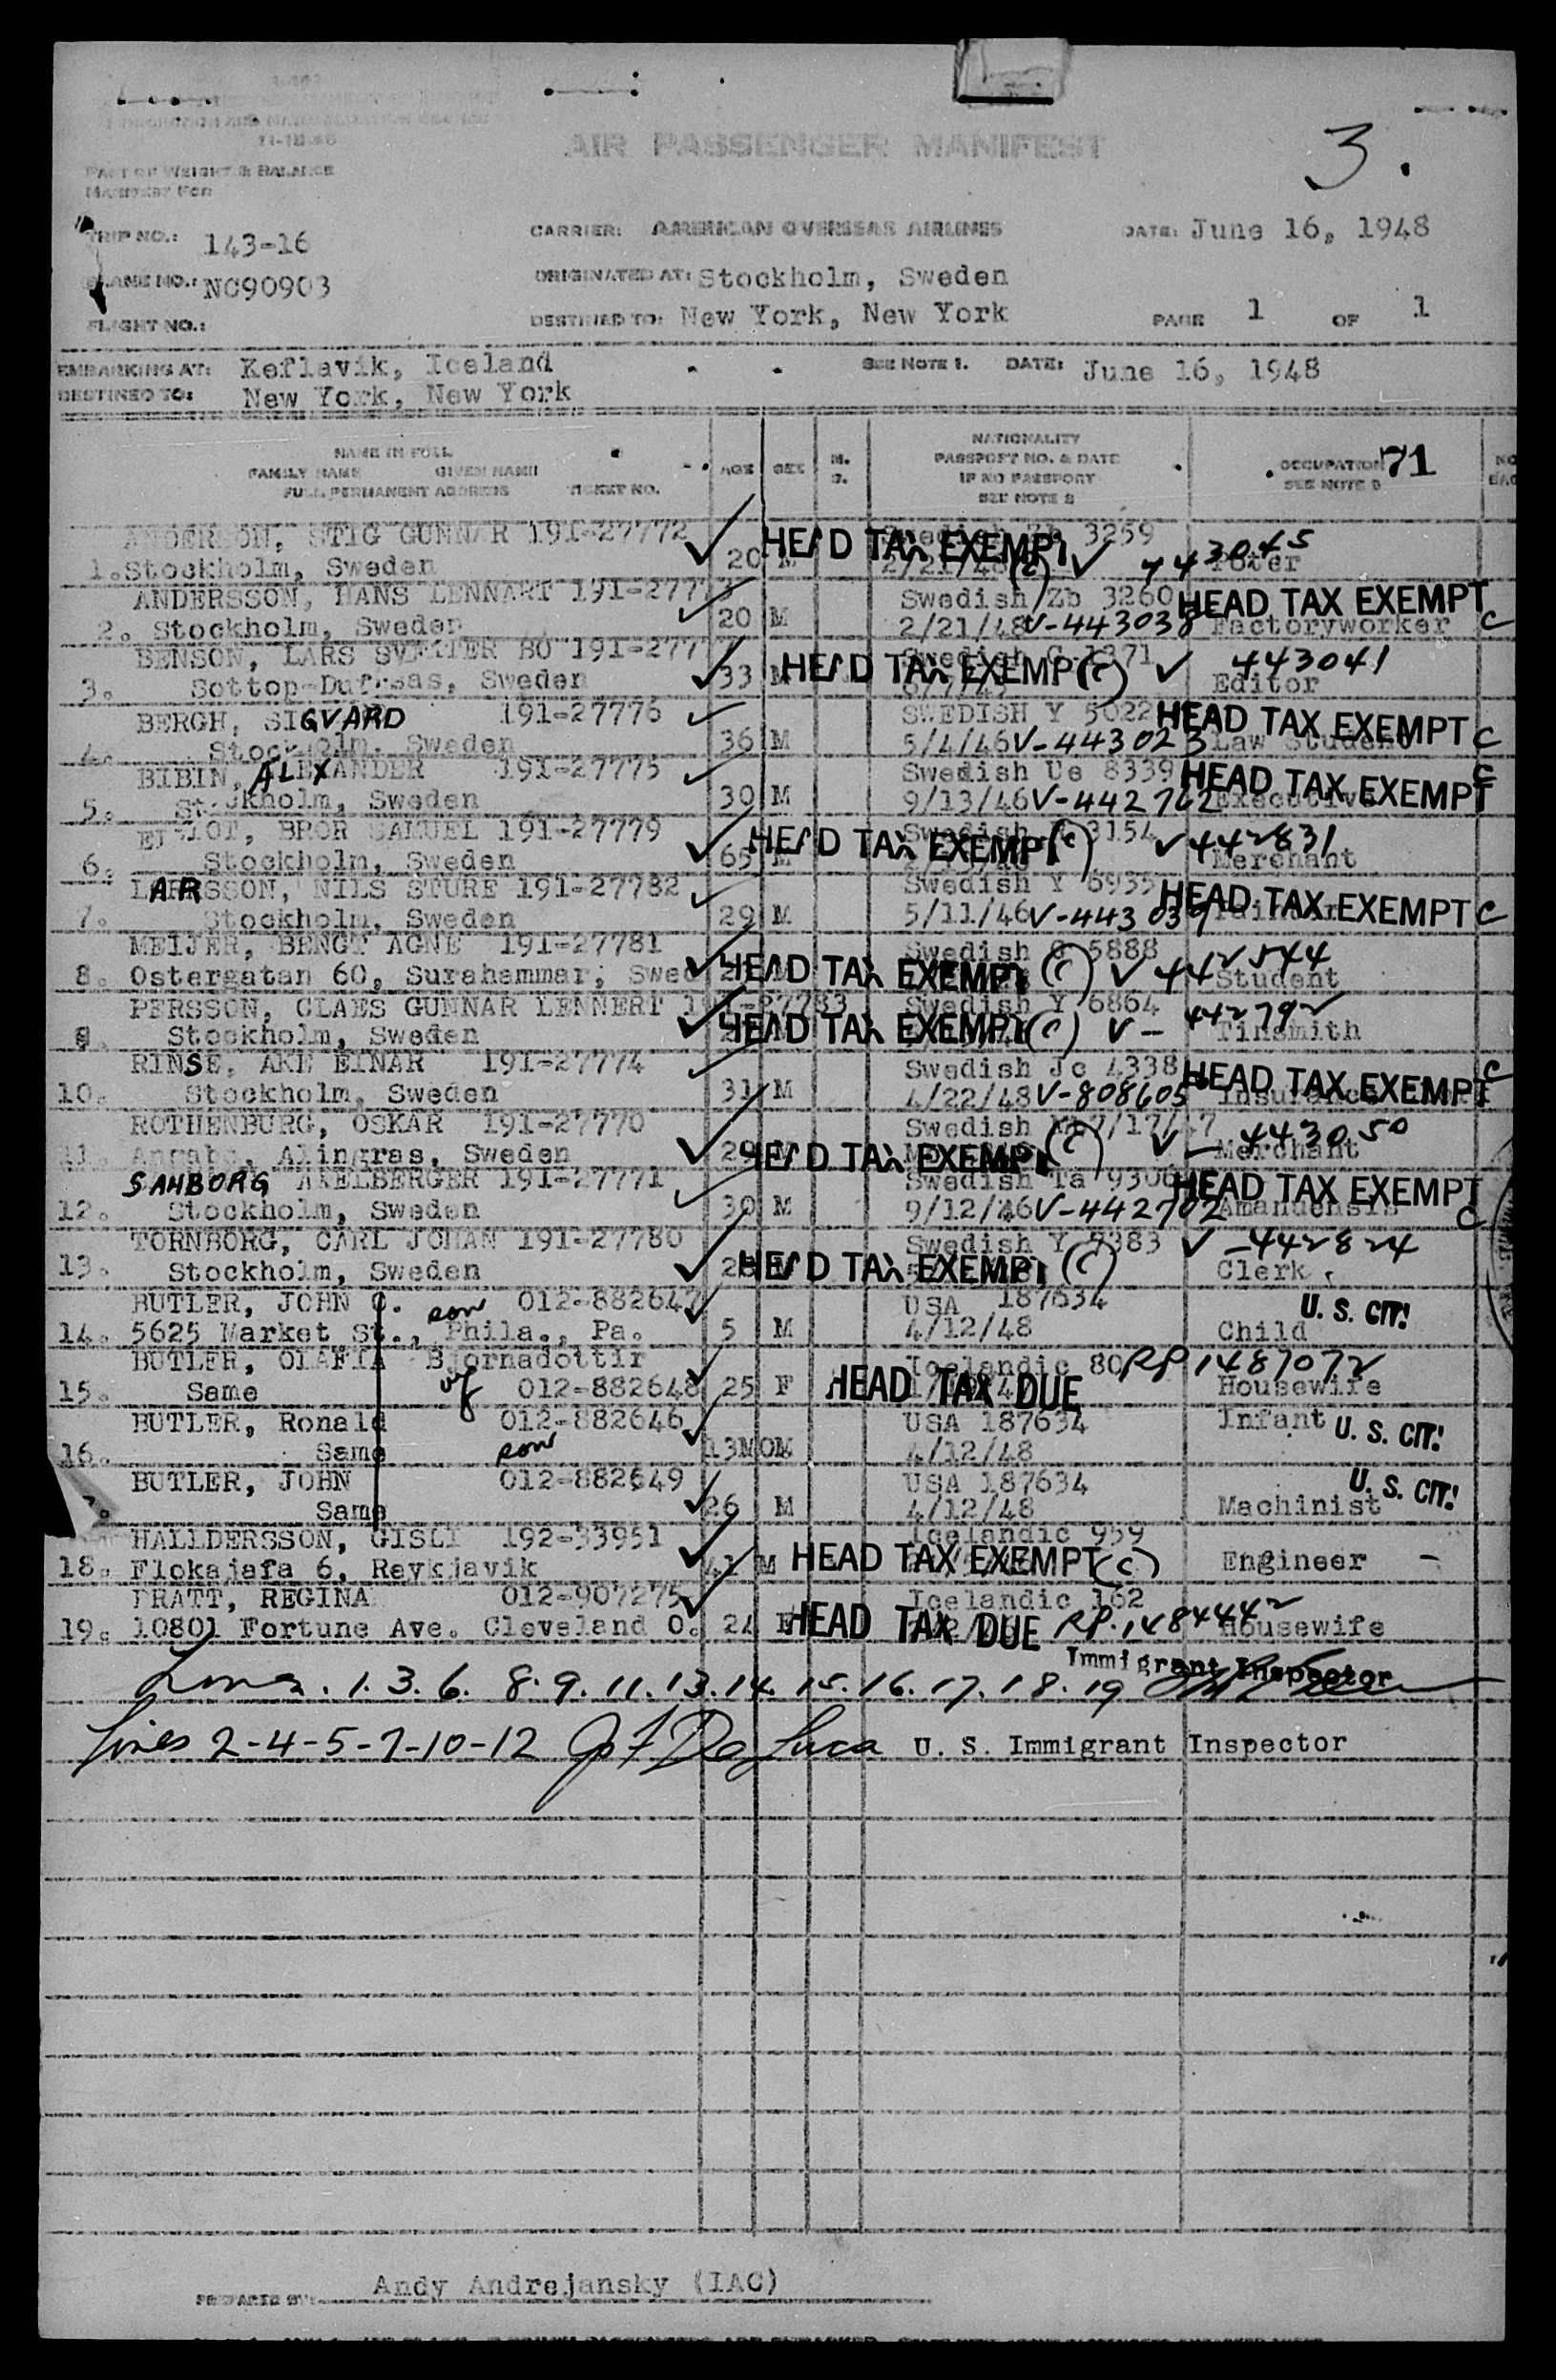 AIR PASSENGER MANIFEST
3.
PART OF WEIGHT & BALANCE
MANIFEST FOR
TRIP NO.: 143-16
CARRIER: AMERICAN OVERSEAS AIRLINES
DATE: June 16, 1948
PLANE NO.: NC90903
ORIGINATED AT: Stockholm, Sweden
FLIGHT NO.:
DESTINED TO: New York, New York
PAGE 1 OF 1
EMBARKING AT: Keflavik, Iceland
SEE NOTE 1. DATE: June 16, 1948
DESTINED TO: New York, New York
NAME IN FULL
FAMILY NAME GIVEN NAME
FULL PERMANENT ADDRESS TICKET NO.
AGE SEX M. S.
NATIONALITY
PASSPORT NO. & DATE
IF NO PASSPORT
SEE NOTE 2
OCCUPATION 71
SEE NOTE 3
STIG GUNNAR 191-27772 HEAD TAX EXEMPT 3259
1. Stockholm, Sweden 20 M (C) 443045
ANDERSSON, HANS LENNART 191-27773 Swedish Zb 3260 HEAD TAX EXEMPT
2. Stockholm, Sweden 20 M 2/21/48 V-443038 Factoryworker C
BENSON, LARS BO 191-277 HEAD TAX EXEMPT (C) 1371 443041
3. Sweden 33 M Editor
BERGH, SIGVARD 191-27776 SWEDISH Y 5022 HEAD TAX EXEMPT
4. Stockholm, Sweden 36 M 5/4/46 V-443023 Law Student C
BIBIN, ALEXANDER 191-27775 Swedish Ue 8339 HEAD TAX EXEMPT C
5. Stockholm, Sweden 30 M 9/13/46 V-442762 Executive
BROR SAMUEL 191-27779 HEAD TAX EXEMPT (C) 3154 442831
6. Stockholm, Sweden 65 M Merchant
LARSSON, NILS STURE 191-27782 Swedish Y 6935 HEAD TAX EXEMPT
7. Stockholm, Sweden 29 M 5/11/46 V-443039 C
MEIJER, BENGT AGNE 191-27781 Swedish 5888 442544
8. Ostergatan 60, Surahammar, Swed HEAD TAX EXEMPT (C) Student
PERSSON, CLAES GUNNAR LENNERT 191-27783 Swedish Y 6864 442792
9. Stockholm, Sweden HEAD TAX EXEMPT (C) V- Tinsmith
RINSE, AKE EINAR 191-27774 Swedish Jc 4338 HEAD TAX EXEMPT C
10. Stockholm, Sweden 31 M 4/22/48 V-808605
ROTHENBURG, OSKAR 191-27770 Swedish 7/17/47 443050
11. Alingras, Sweden 29 M HEAD TAX EXEMPT (C) Merchant
SAHBORG AXELBERGER 191-27771 Swedish Ta 9306 HEAD TAX EXEMPT
12. Stockholm, Sweden 30 M 9/12/46 V-442702 Amanuensis C
TORNBORG, CARL JOHAN 191-27780 Swedish Y 442824
13. Stockholm, Sweden HEAD TAX EXEMPT (C) Clerk
BUTLER, JOHN son 012-882647 USA 187634 U. S. CIT!
14. 5625 Market St., Phila., Pa. 5 M 4/12/48 Child
BUTLER, OLAFIA Bjornadottir Icelandic 80 RP 1487072
15. Same wf 012-882648 25 F HEAD TAX DUE Housewife
BUTLER, Ronald 012-882646 USA 187634 Infant U. S. CIT!
16. Same son 13MO M 4/12/48
BUTLER, JOHN 012-882649 USA 187634 U. S. CIT!
Same 26 M 4/12/48 Machinist
HALLDERSSON, GISLI 192-53951 Icelandic 959
18. Flokajafa 6, Reykjavik 41 M HEAD TAX EXEMPT (C) Engineer -
PRATT, REGINA 012-907275 Icelandic 162
19. 10801 Fortune Ave. Cleveland O. 24 F HEAD TAX DUE RP. 1484442 Housewife
Immigrant Inspector
Lines. 1. 3. 6. 8. 9. 11. 13. 14. 15. 16. 17. 18. 19
Lines 2-4-5-7-10-12 De Luca U. S. Immigrant Inspector
PREPARED BY: Andy Andrejansky (IAC)